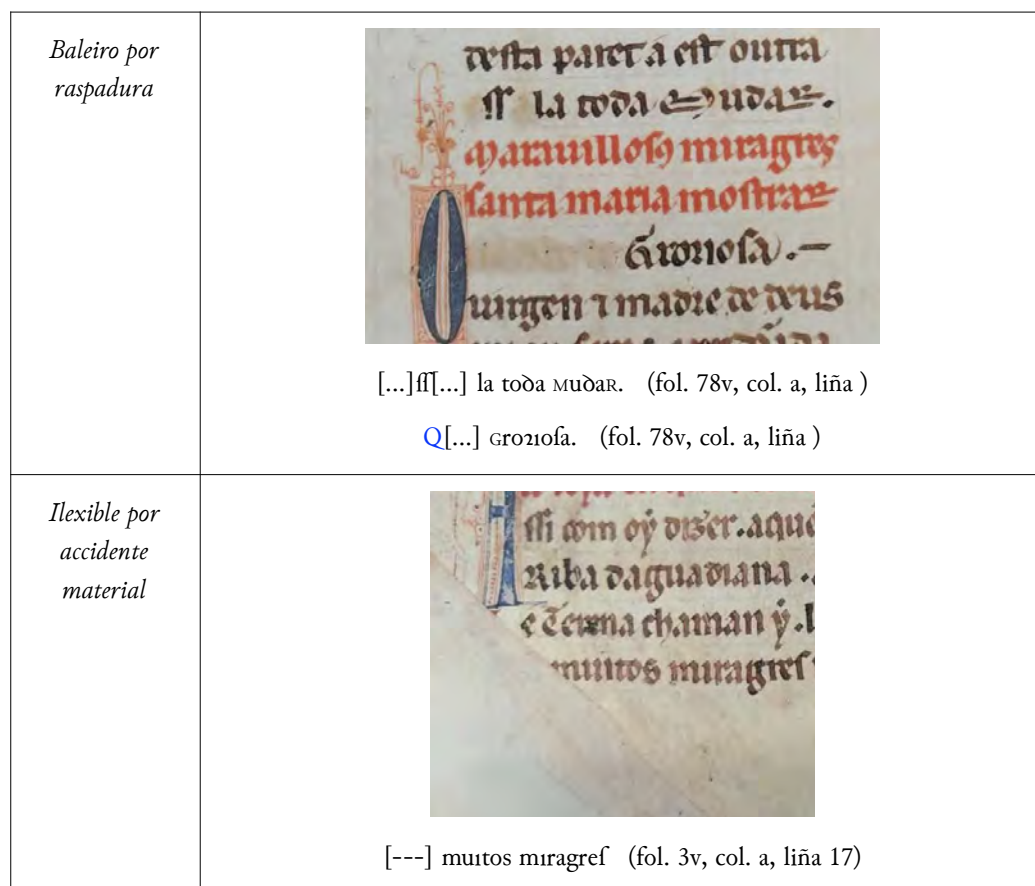 Baleiro por
raspadura
deſta paret a eſt outra
ſſ la toda Mudar.
Marauilloſos miragres
ſanta maria moſtrar
Grorioſa .—
uirgen ⁊ madre de deus
[...]ſſ[...] la toꝺa ᴍuꝺaʀ. (fol. 78v, col. a, liña )
Q[...] ɢroꝛıoſa. (fol. 78v, col. a, liña )
Ilexible por
accidente
material
ſſi com oẏ dizer. aque
Riba daguadiana .
e Terena chaman ẏ .
muitos miragreſ
[---] muıtos mıragreſ (fol. 3v, col. a, liña 17)